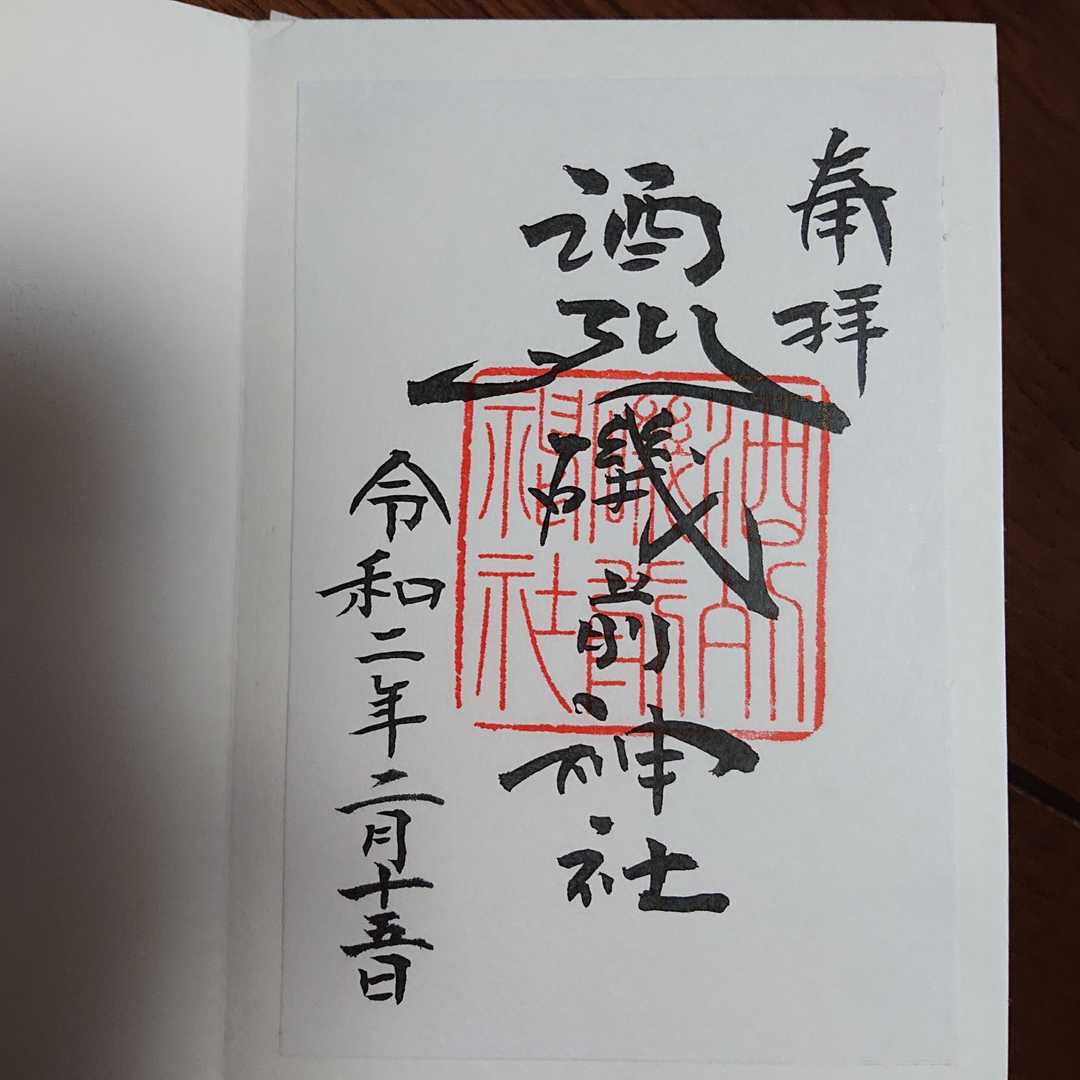 奉拝
酒列磯前神社
令和二年二月十五日
酒列
磯前
神社